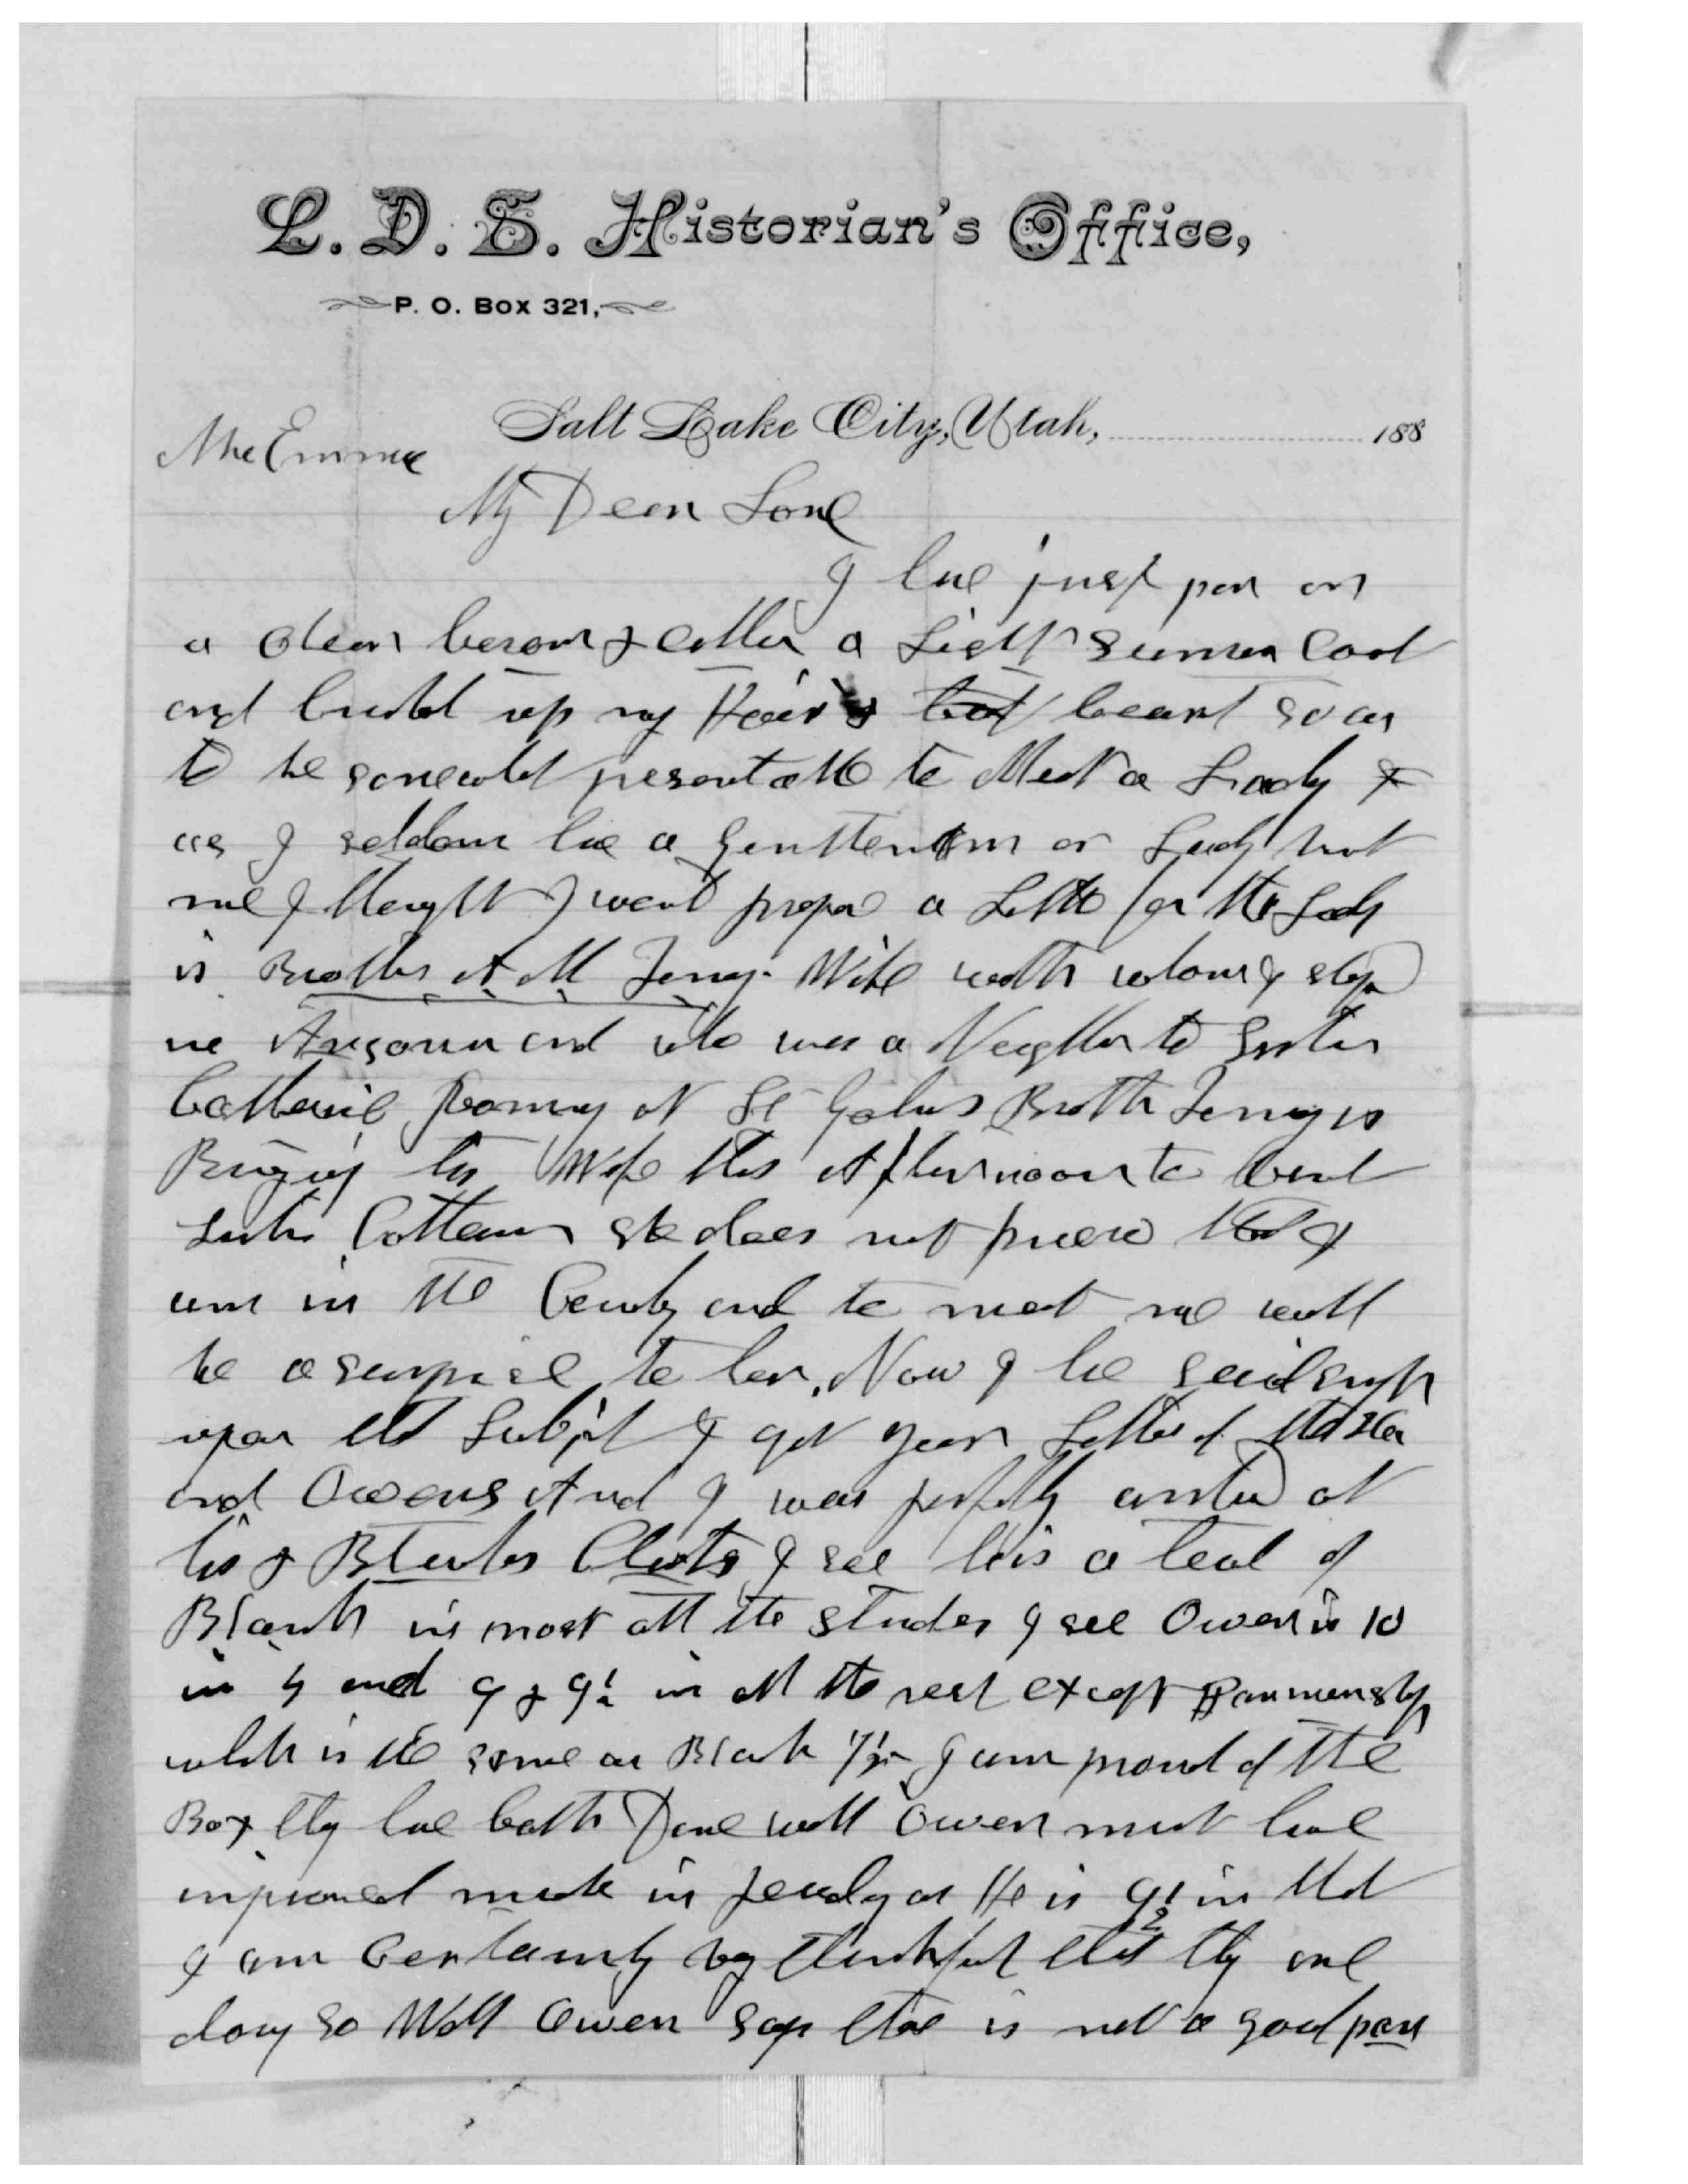 L. D. S. Historian's Office,
P. O. Box 321,
Salt Lake City, Utah, 188
Mrs Emma
My Dear Love
I have just put on
a clean bosom & collar a Light Summer Coat
and brushd up my Hair & beard so as
to be somewhat presentable to Meet a Lady &
as I seldom have a Gentleman or Lady visit
me I thought I would prepare a Little for the Lady
is Brother A M Tenny Wife with whom I stopd
in Arizona and who was a Neighbor to Sister
Romney at St Johns Brother Tenny is
Bringing his Wife this Afternoon to
she does not know that I
am in the County and to meet me will
be a surprise to her. Now I have said enough
upon that Subject I got your Letter of the
and Owens And I was perfectly at
his & B I see he is a head of
Blanch in most all the studies I see Owen is 10
in 4 and 9 & 9½ in all the rest except Penmanship
which is the same as Blanch 7½ I am proud of the
Boy they have both Done well Owen must have
improved much in as He is 9½ in that
I am Certainly very thankful that they are
doing so Well Owen says there is not a good pen